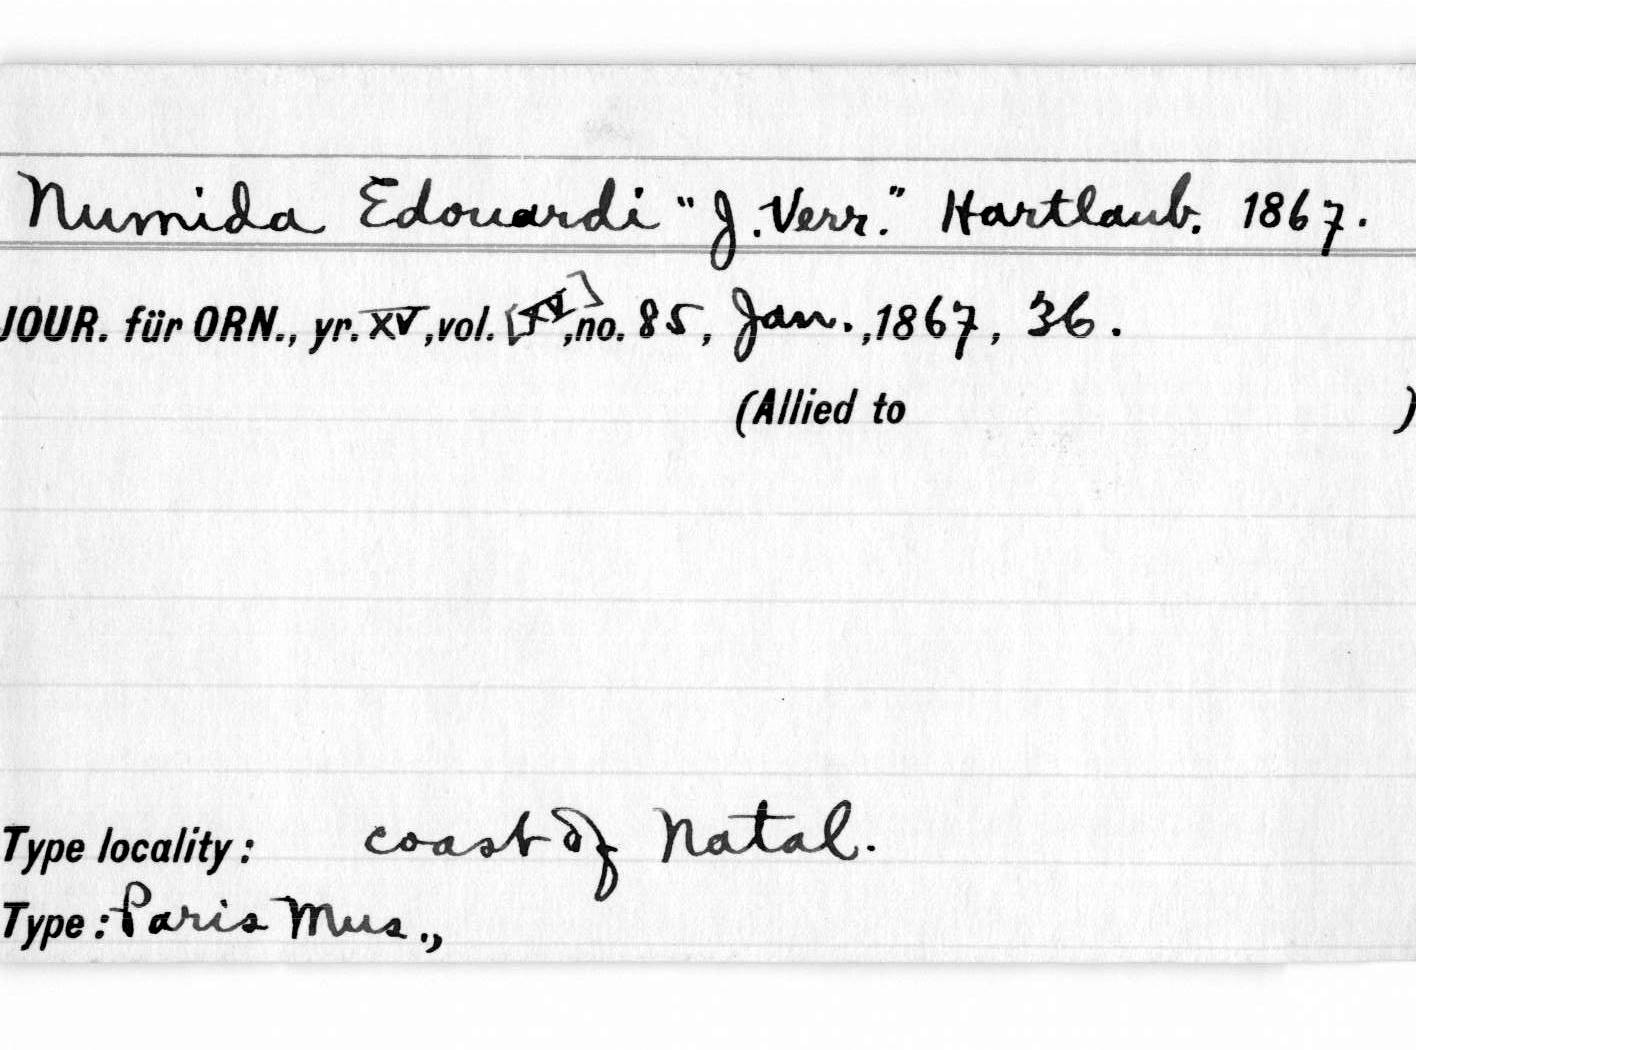 Numida Edouardi "J. Verr." Hartlaub. 1867.
JOUR. für ORN., yr. XV, vol. [XV], no. 85, Jan., 1867, 36.
(Allied to )
Type locality: coast of Natal.
Type: Paris Mus.,